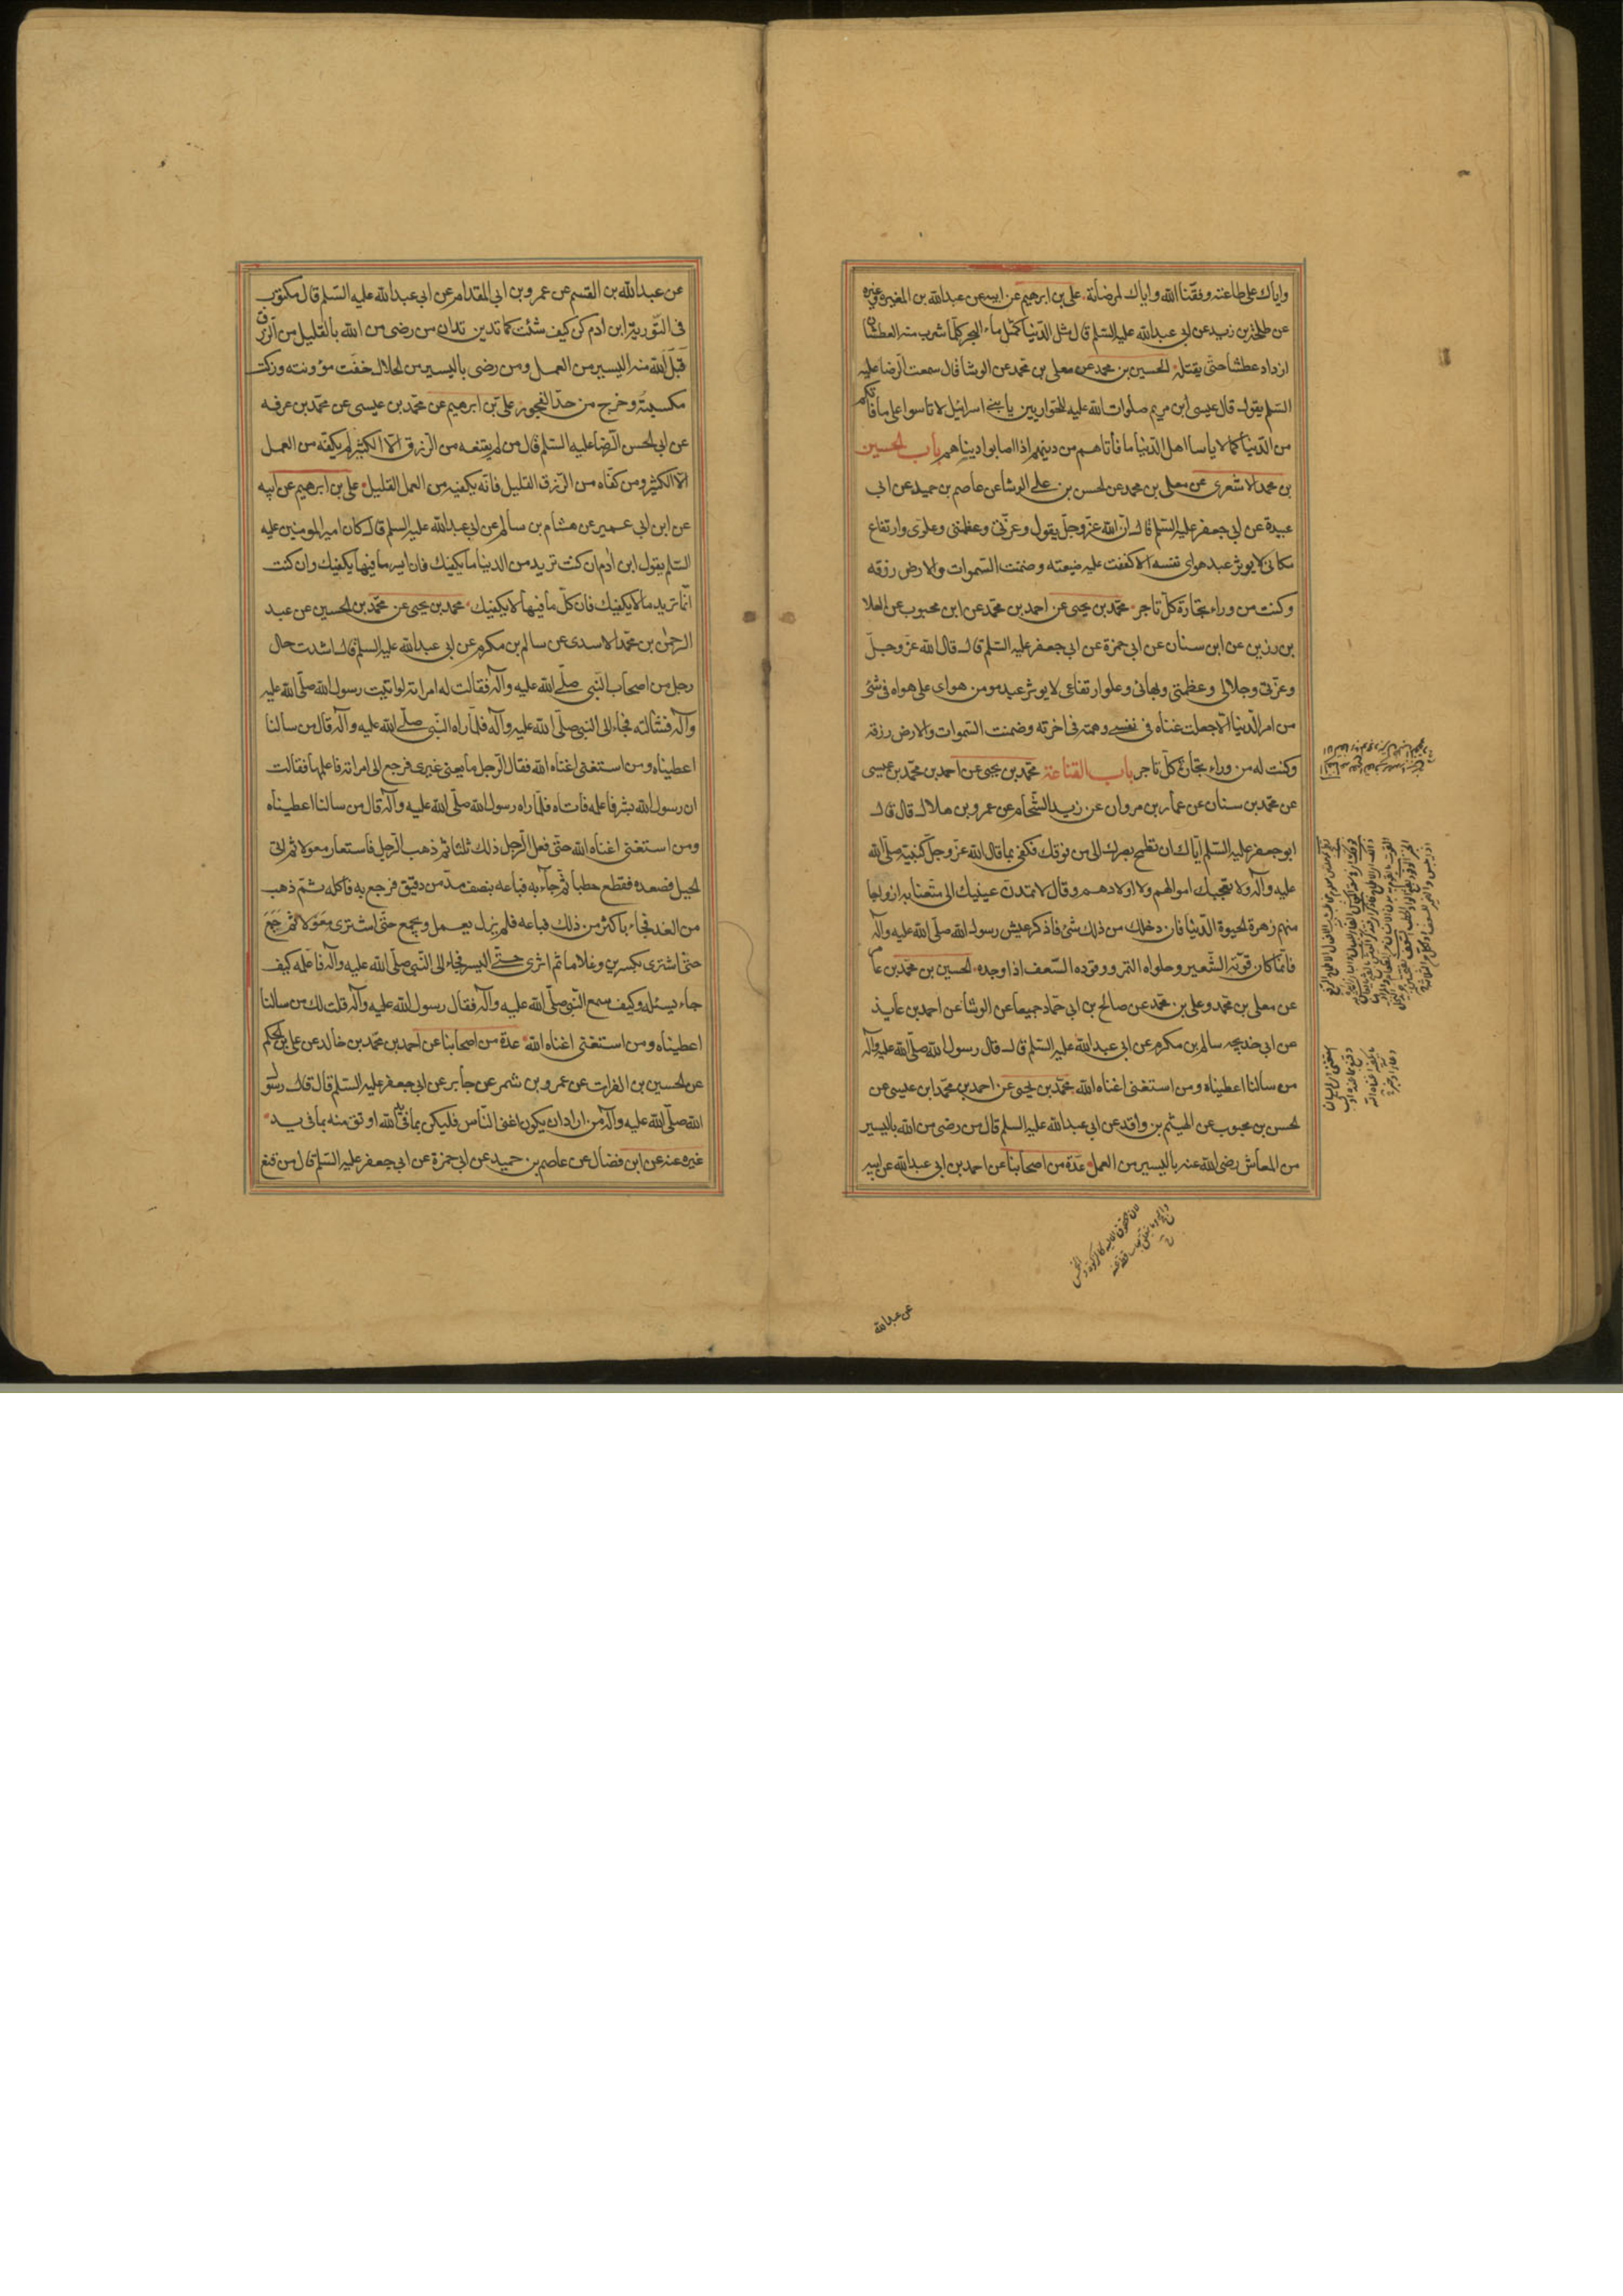 واياك على طاعته وفقنا الله واياك لمرضاته علي بن ابرهيم عن ابيه عن عبدالله بن المغيره عن غيره
عن طلحة بن زيد عن ابي عبدالله عليه السلم قال مثل الدنيا كمثل ماء البحر كلما شرب منه العطشان
ازداد عطشا حتى يقتله الحسين بن محمد عن معلى بن محمد عن الوشا قال سمعت الرضا عليه
السلم يقول قال عيسى ابن مريم صلوات الله عليه للحواريين يا بني اسرائيل لا تاسوا على ما فاتكم
من الدنيا كما لا ياسا اهل الدنيا ما فاتاهم من دينهم اذا اصابوا دنياهم باب الحسين
بن محمد الاشعرى عن معلى بن محمد عن الحسن بن على الوشا عن عاصم بن حميد عن ابي
عبيدة عن ابي جعفر عليه السلم قال ان الله عز وجل يقول وعزتى وعظمتى وعلوى وارتفاع
مكانى لا يوثر عبد هواى نفسه الا كففت عليه ضيعته وضمنت السموات والارض رزقه
وكنت من وراء تجارة كل تاجر محمد بن يحيى عن احمد بن محمد عن ابن محبوب عن العلا
بن رزين عن ابن سنان عن ابي حمزة عن ابي جعفر عليه السلم قال قال الله عز وجل
وعزتى وجلالى وعظمتى وبهائى وعلو ارتفاعى لا يوثر عبد مومن هواى على هواه فى شئ
من امر الدنيا الا جعلت غناه فى نفسه وهمته فى اخرته وضمنت السموات والارض رزقه
وكنت له من وراء تجارة كل تاجر باب القناعة محمد بن يحيى عن احمد بن محمد بن عيسى
عن محمد بن سنان عن عمار بن مروان عن زيد الشحام عن عمرو بن هلال قال قال
ابو جعفر عليه السلم اياك ان تطمح بصرك الى من فوقك فكفى بما قال الله عز وجل لنبيه صلى الله
عليه وآله ولا تعجبك اموالهم ولا اولادهم وقال لا تمدن عينيك الى ما متعنا به ازواجا
منهم زهرة الحيوة الدنيا فان دخلك من ذلك شئ فاذكر عيش رسول الله صلى الله عليه وآله
فانما كان قوته الشعير وحلواه التمر ووقوده السعف اذا وجده الحسين بن محمد بن عامر
عن معلى بن محمد وعلى بن محمد عن صالح بن ابي حماد جميعا عن الوشا عن احمد بن عايذ
عن ابي خديجه سالم بن مكرم عن ابي عبدالله عليه السلم قال قال رسول الله صلى الله عليه وآله
من سالنا اعطيناه ومن استغنى اغناه الله محمد بن يحيى عن احمد بن محمد ابن عيسى عن
الحسن بن محبوب عن الهيثم بن واقد عن ابي عبدالله عليه السلم قال من رضى من الله باليسير
من المعاش رضى الله عنه باليسير من العمل عدة من اصحابنا عن احمد بن ابي عبدالله عن ابيه
عن عبدالله
عن عبدالله بن القسم عن عمرو بن ابي المقدام عن ابي عبدالله عليه السلم قال مكتوب
فى التورية ابن ادم كن كيف شئت كما تدين تدان من رضى من الله بالقليل من الرزق
قبل الله منه اليسير من العمل ومن رضى باليسير من الحلال خفت مؤونته وزكت
مكسبته وخرج من حد الفجور على بن ابرهيم عن محمد بن عيسى عن محمد بن عرفه
عن ابي الحسن الرضا عليه السلم قال من لم يقنعه من الرزق الا الكثير لم يكفه من العمل
الا الكثير ومن كفاه من الرزق القليل فانه يكفيه من العمل القليل على بن ابرهيم عن ابيه
عن ابن ابي عمير عن هشام بن سالم عن ابي عبدالله عليه السلم قال كان امير المومنين عليه
السلم يقول ابن ادم ان كنت تريد من الدنيا ما يكفيك فان ايسر ما فيها يكفيك وان كنت
انما تريد ما لا يكفيك فان كل ما فيها لا يكفيك محمد بن يحيى عن محمد بن الحسين عن عبد
الرحمن بن محمد الاسدى عن سالم بن مكرم عن ابي عبدالله عليه السلم قال اشتدت حال
رجل من اصحاب النبي صلى الله عليه وآله فقالت له امراته لو اتيت رسول الله صلى الله عليه
وآله فسئالته فجاء الى النبي صلى الله عليه وآله فلما راه النبي صلى الله عليه وآله قال من سالنا
اعطيناه ومن استغنى اغناه الله فقال الرجل ما يعنى غيرى فرجع الى امراته فاعلمها فقالت
ان رسول الله بشر فاعلمه فاتاه فلما راه رسول الله صلى الله عليه وآله قال من سالنا اعطيناه
ومن استغنى اغناه الله حتى فعل الرجل ذلك ثلثا ثم ذهب الرجل فاستعار معولا ثم اتى
الجبل فصعده فقطع حطبا ثم جاء به فباعه بنصف مد من دقيق فرجع به فاكله ثم ذهب
من الغد فجاء باكثر من ذلك فباعه فلم يزل يعمل ويجمع حتى اشترى معولا ثم جمع
حتى اشترى بكرين وغلاما ثم اثرى حتى ايسر فجاء الى النبي صلى الله عليه وآله فاعلمه كيف
جاء يسئله وكيف سمع النبي صلى الله عليه وآله فقال رسول الله عليه وآله قلت لك من سالنا
اعطيناه ومن استغنى اغناه الله عدة من اصحابنا عن احمد بن محمد بن خالد عن على بن الحكم
عن الحسين بن الفرات عن عمرو بن شمر عن جابر عن ابي جعفر عليه السلم قال قال رسول
الله صلى الله عليه وآله من اراد ان يكون اغنى الناس فليكن بما فى يد الله اوثق منه بما فى يد
غيره عنه عن ابن فضال عن عاصم بن حميد عن ابي حمزة عن ابي جعفر عليه السلم قال من قنع